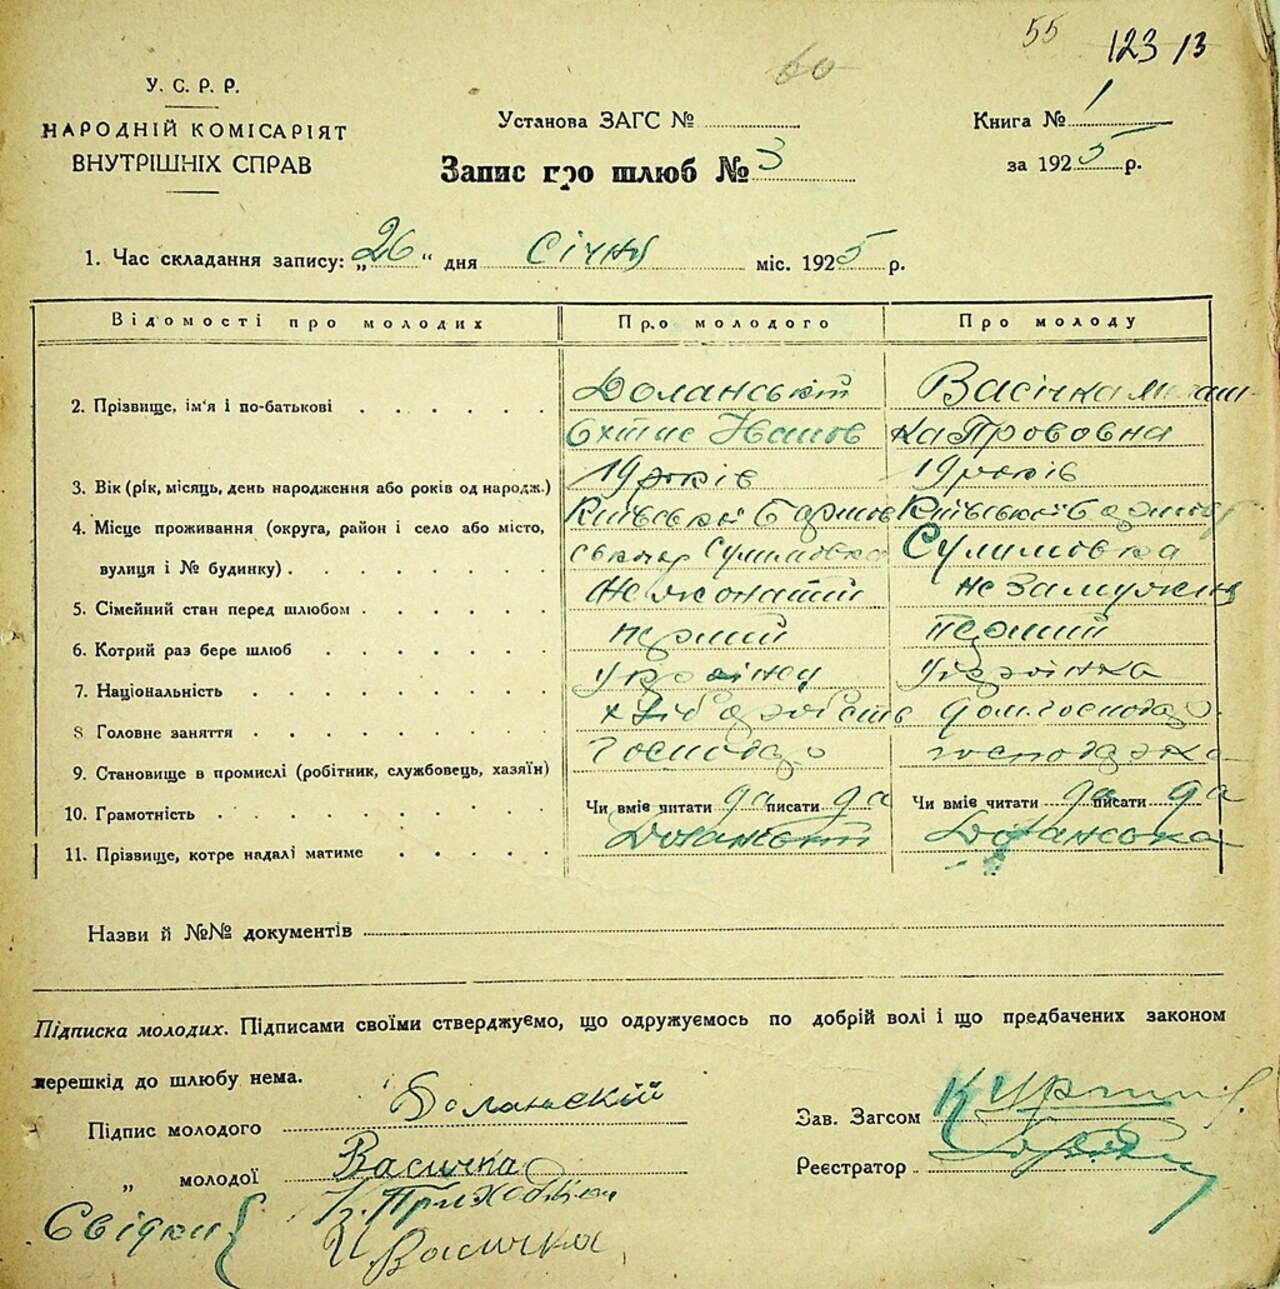 55 123 13
60
У. С. Р. Р.
НАРОДНІЙ КОМІСАРІЯТ
ВНУТРІШНІХ СПРАВ
Установа ЗАГС №
Книга № 1
Запис про шлюб № 3
за 1925 р.
1. Час складання запису: „26“ дня Січня міс. 1925 р.
Відомості про молодих Про молодого Про молоду
2. Прізвище, ім'я і по-батькові Доланській Васічка
Іванов Прововна
3. Вік (рік, місяць, день народження або років од народж.) 19 років 19 років
4. Місце проживання (округа, район і село або місто, Київської Київської
вулиця і № будинку) Сулимовка Сулимовка
5. Сімейний стан перед шлюбом Не жонатий не замужня
6. Котрий раз бере шлюб перший перший
7. Національність українец українка
8 Головне заняття хліборобств дом. господар.
9. Становище в промислі (робітник, службовець, хазяїн) Господар господарка
10. Грамотність Чи вміє читати да писати да Чи вміє читати да писати да
11. Прізвище, котре надалі матиме Доланській Доланська
Назви й №№ документів
Підписка молодих. Підписами своїми стверджуємо, що одружуємось по добрій волі і що предбачених законом
перешкід до шлюбу нема.
Підпис молодого Доланскій
Зав. Загсом
„ молодої Васичка
Реєстратор
Свідки
Васичка